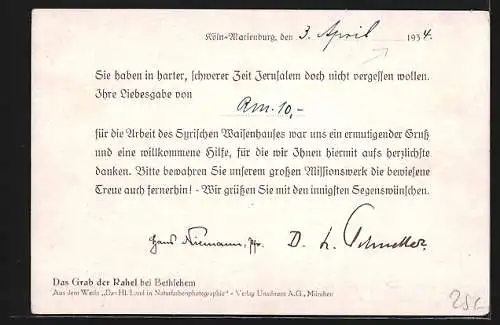 Köln-Marienburg, den 3. April 1934.
Sie haben in harter, schwerer Zeit Jerusalem doch nicht vergessen wollen.
Ihre Liebesgabe von
Rm. 10,-
für die Arbeit des Syrischen Waisenhauses war uns ein ermutigender Gruß
und eine willkommene Hilfe, für die wir Ihnen hiermit aufs herzlichste
danken. Bitte bewahren Sie unserem großen Missionswerk die bewiesene
Treue auch fernerhin! - Wir grüßen Sie mit den innigsten Segenswünschen.
Hans Niemann, Pfr. D. L. Schneller.
Das Grab der Rahel bei Bethlehem
Aus dem Werk "Das Hl. Land in Naturfarbenphotographie" - Verlag Uvachrom A.G., München